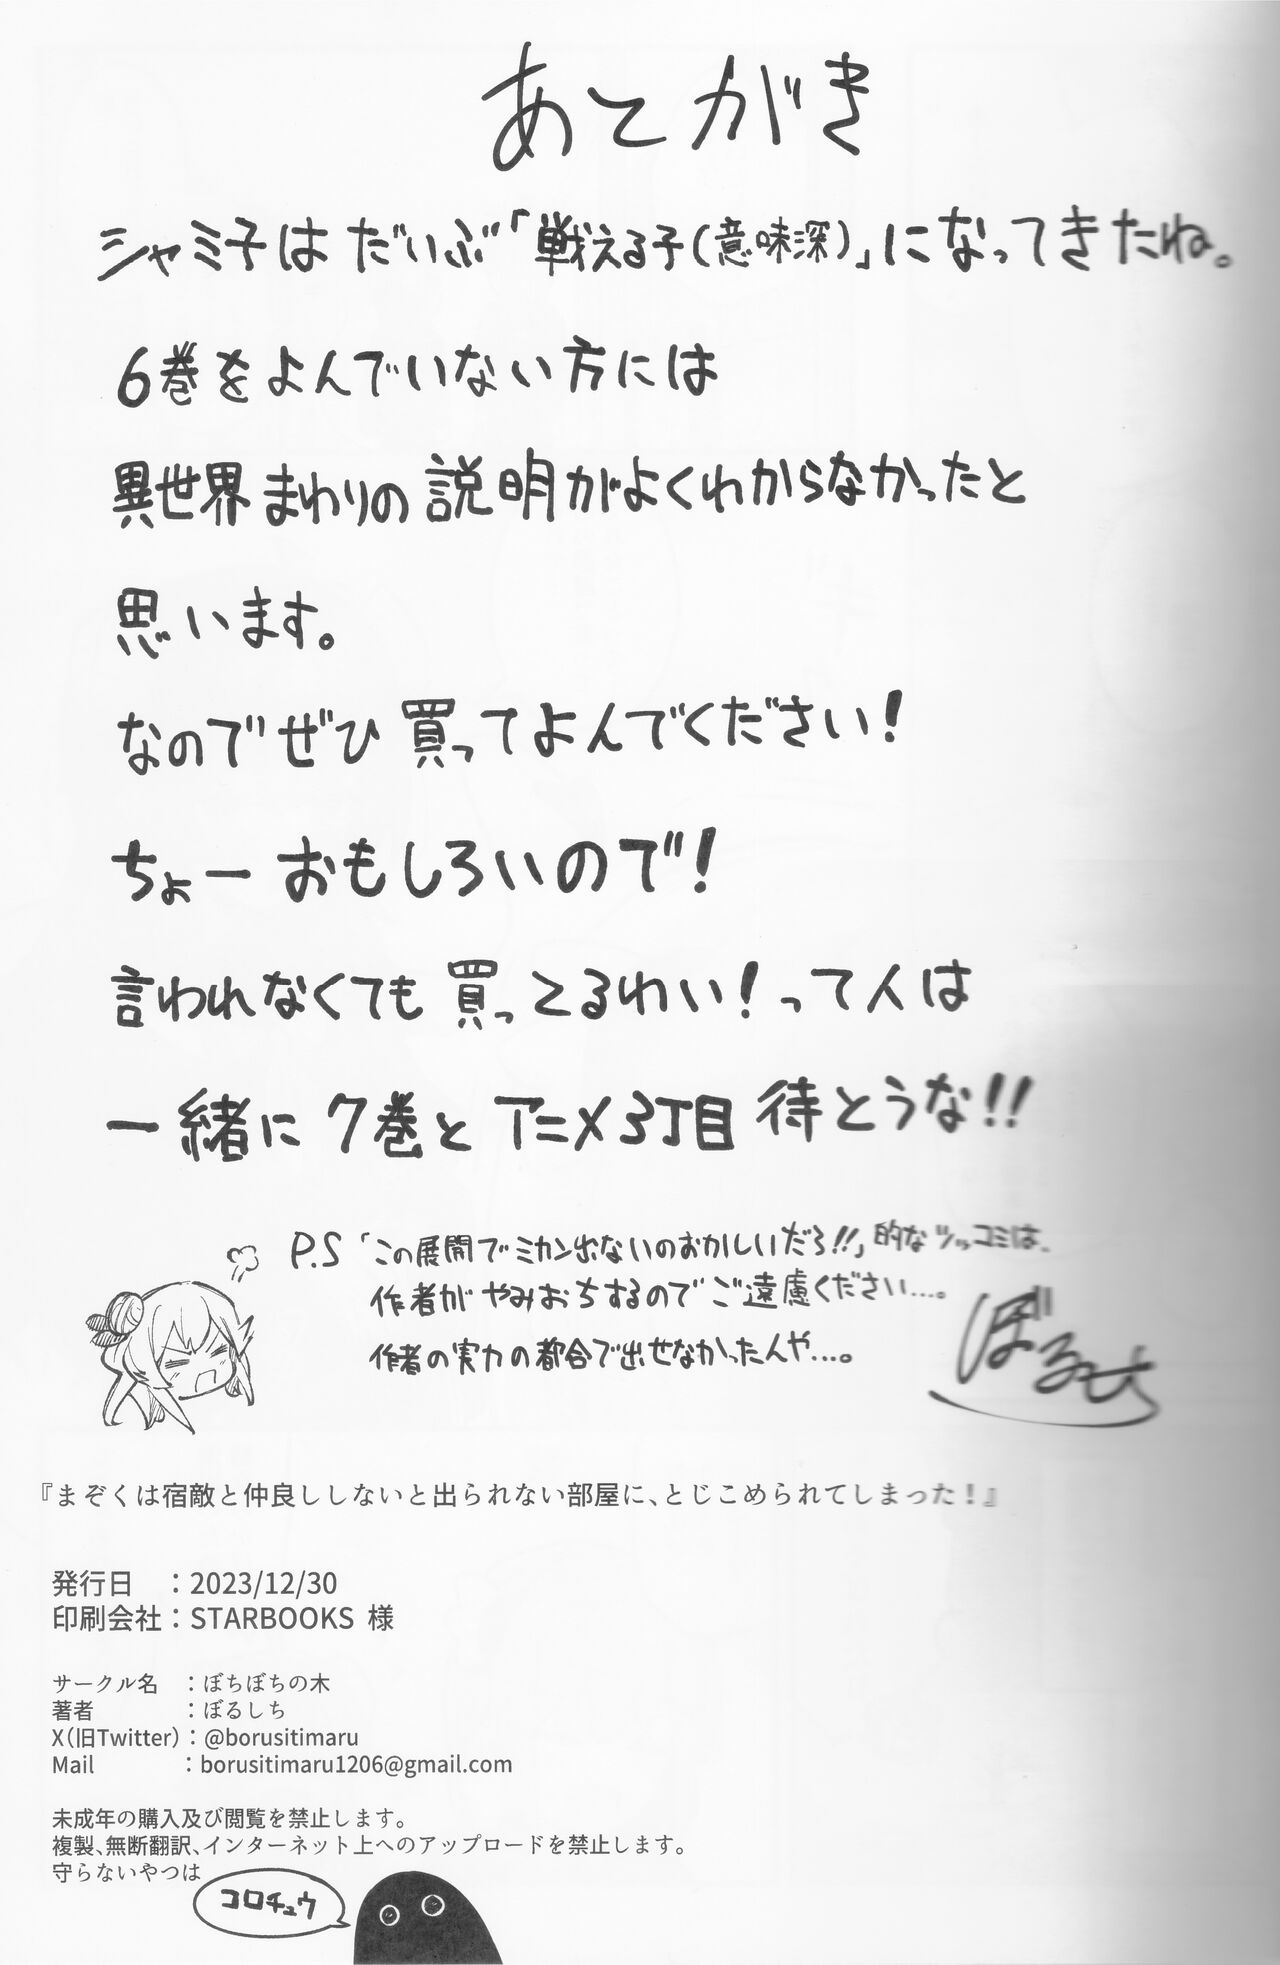 あとがき
シャミ子はだいぶ「戦える子(意味深)」になってきたね。
6巻をよんでいない方には
異世界まわりの説明がよくわからなかったと
思います。
なのでぜひ買ってよんでください!
ちょーおもしろいので!
言われなくても買ってるわい!って人は
一緒に7巻とアニメ3丁目待とうな!!
P.S「この展開でミカン出ないのおかしいだろ!!」的なツッコミは、
作者がやみおちするのでご遠慮ください...。
作者の実力の都合で出せなかったんや...。
ぼるしち
『まぞくは宿敵と仲良ししないと出られない部屋に、とじこめられてしまった!』
発行日 :2023/12/30
印刷会社:STARBOOKS 様
サークル名 :ぼちぼちの木
著者 :ぼるしち
X(旧Twitter):@borusitimaru
Mail :borusitimaru1206@gmail.com
未成年の購入及び閲覧を禁止します。
複製、無断翻訳、インターネット上へのアップロードを禁止します。
守らないやつは
コロチュウ